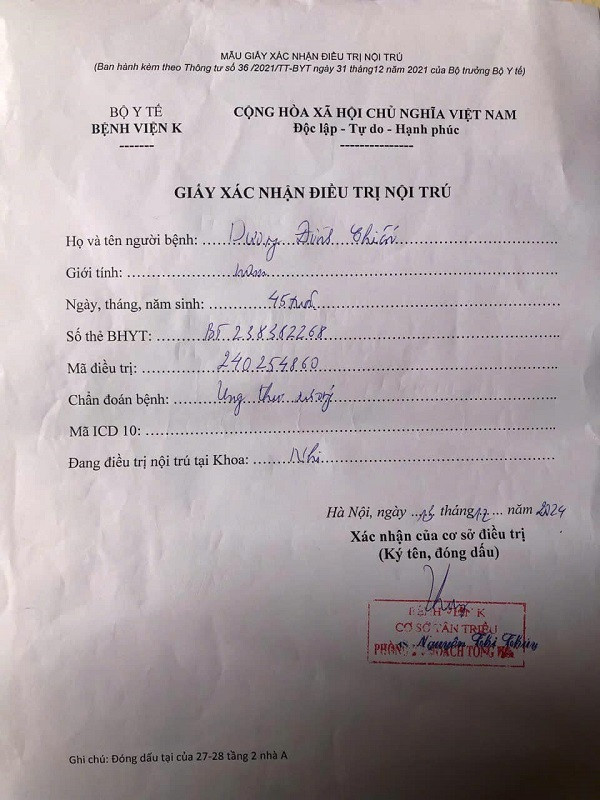 MẪU GIẤY XÁC NHẬN ĐIỀU TRỊ NỘI TRÚ
(Ban hành kèm theo Thông tư số 36 /2021/TT-BYT ngày 31 tháng12 năm 2021 của Bộ trưởng Bộ Y tế)
BỘ Y TẾ
BỆNH VIỆN K
-------
CỘNG HÒA XÃ HỘI CHỦ NGHĨA VIỆT NAM
Độc lập - Tự do - Hạnh phúc
---------------
GIẤY XÁC NHẬN ĐIỀU TRỊ NỘI TRÚ
Họ và tên người bệnh: Dương Đình Chiến
Giới tính: nam
Ngày, tháng, năm sinh: 45 tuổi
Số thẻ BHYT: BT 238382268
Mã điều trị: 240254860
Chẩn đoán bệnh: Ung thư xương
Mã ICD 10:
Đang điều trị nội trú tại Khoa: Nhi
Hà Nội, ngày 13 tháng 12 năm 2024
Xác nhận của cơ sở điều trị
(Ký tên, đóng dấu)
BỆNH VIỆN K
CƠ SỞ TÂN TRIỀU
Nguyễn Thị Thúy
PHÒNG HOẠCH TỔNG
Ghi chú: Đóng dấu tại của 27-28 tầng 2 nhà A